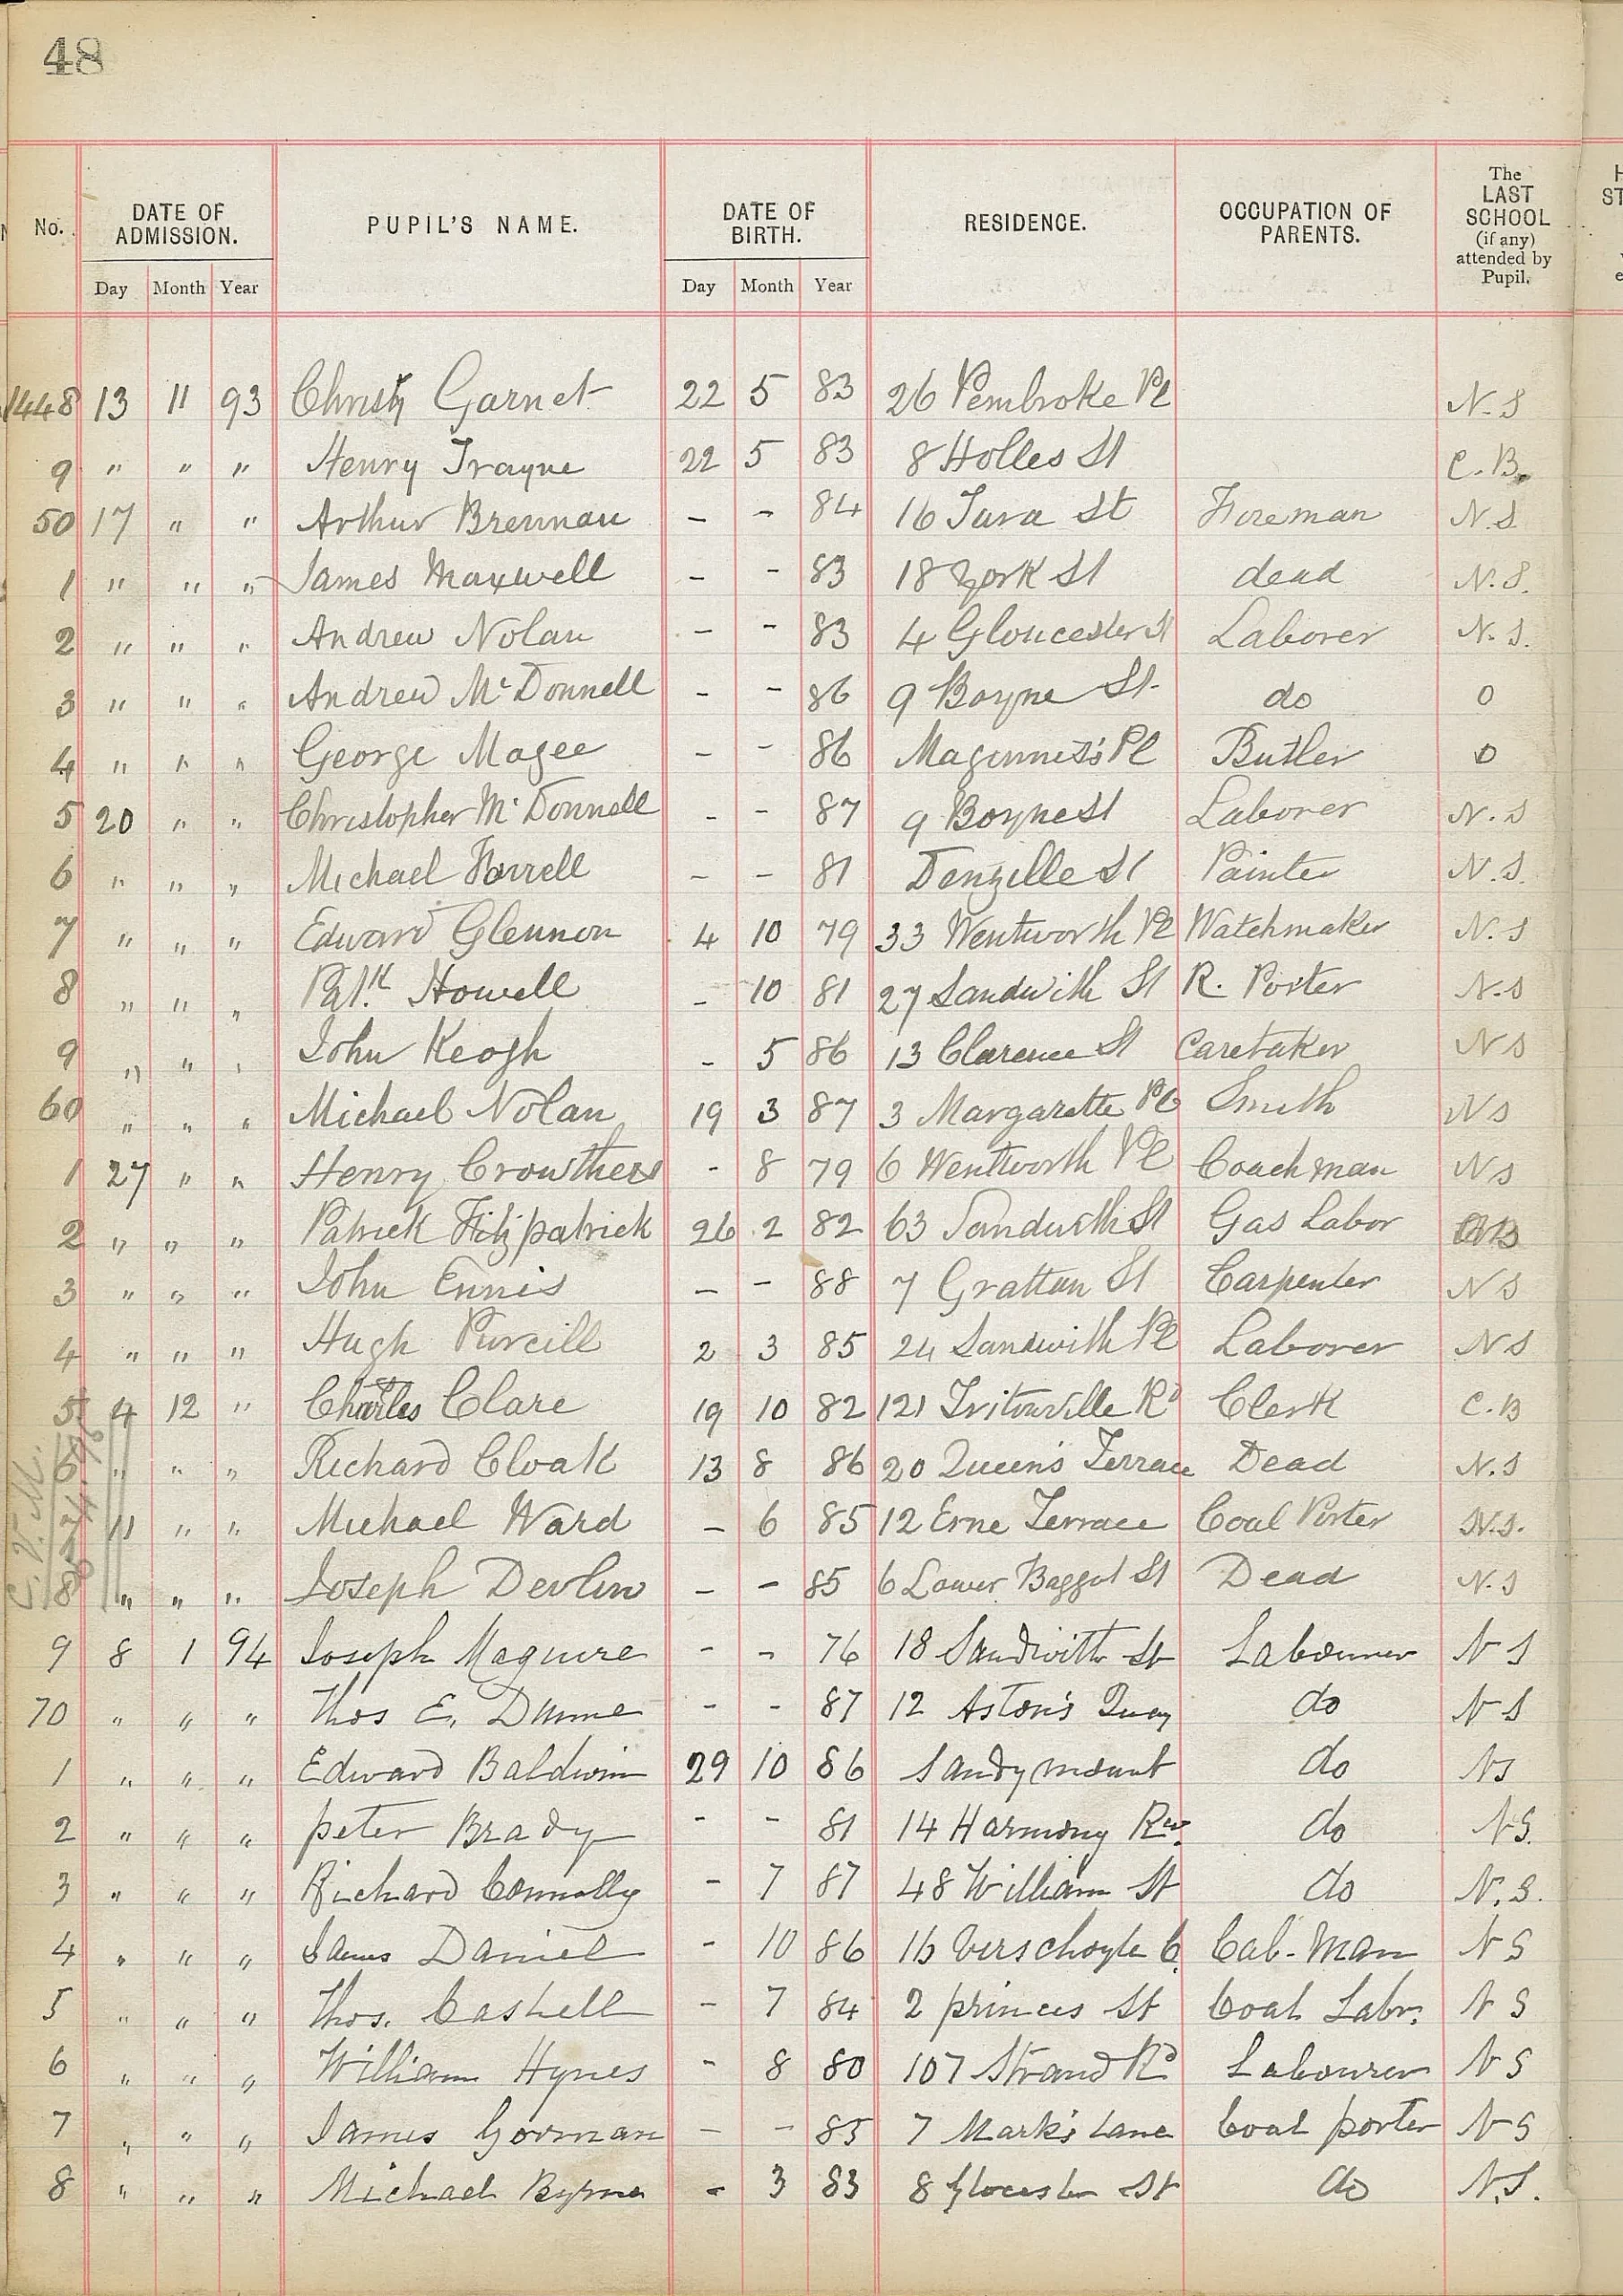 48
No. DATE OF ADMISSION. PUPIL'S NAME. DATE OF BIRTH. RESIDENCE. OCCUPATION OF PARENTS. The LAST SCHOOL (if any) attended by Pupil.
Day Month Year Day Month Year
1448 13 11 93 Christy Garnet 22 5 83 26 Pembroke Pl N.S
9 " " " Henry Trayne 22 5 83 8 Holles St C.B.
50 17 " " Arthur Brennan - - 84 16 Tara St Fireman N.S
1 " " " James Maxwell - - 83 18 York St dead N.S.
2 " " " Andrew Nolan - - 83 4 Gloucester St Laborer N.S.
3 " " " Andrew McDonnell - - 86 9 Boyne St. do 0
4 " " " George Magee - - 86 Maginnis's Pl Butler 0
5 20 " " Christopher McDonnell - - 87 9 Boyne St Laborer N.S
6 " " " Michael Farrell - - 81 Denzille St Painter N.S.
7 " " " Edward Glennon 4 10 79 33 Wentworth Pl Watchmaker N.S
8 " " " Patk Howell - 10 81 27 Sandwith St R. Porter N.S
9 " " " John Keogh - 5 86 13 Clarence St Caretaker NS
60 " " " Michael Nolan 19 3 87 3 Margarette Pl Smith NS
1 27 " " Henry Crowthers - 8 79 6 Wentworth Pl Coachman NS
2 " " " Patrick Fitzpatrick 26 2 82 63 Sandwith St Gas Labor
3 " " " John Ennis - - 88 7 Grattan St Carpenter NS
4 " " " Hugh Purcill 2 3 85 24 Sandwith Pl Laborer NS
5 4 12 " Charles Clare 19 10 82 121 Tritonville Rd Clerk C.B
6 " " " Richard Cloak 13 8 86 20 Queen's Terrace Dead N.S
7 11 " " Michael Ward - 6 85 12 Erne Terrace Coal Porter N.S.
8 " " " Joseph Devlin - - 85 6 Lower Baggot St Dead N.S
9 8 1 94 Joseph Maguire - - 76 18 Sandwith St Labourer NS
70 " " " Thos E. Dunne - - 87 12 Aston's Quay do NS
1 " " " Edward Baldwin 29 10 86 Sandymount do NS
2 " " " Peter Brady - - 81 14 Harmony Rw. do NS.
3 " " " Richard Connolly - 7 87 48 William St do N.S.
4 " " " James Daniel - 10 86 16 Verschoyle C. Cab-Man NS
5 " " " Thos. Cashell - 7 84 2 Princes St Coal Labr. NS
6 " " " William Hynes - 8 80 107 Strand Rd Labourer NS
7 " " " James Gorman - - 85 7 Mark's Lane Coal porter NS
8 " " " Michael Byrne - 3 83 8 Glocester St do N.S.